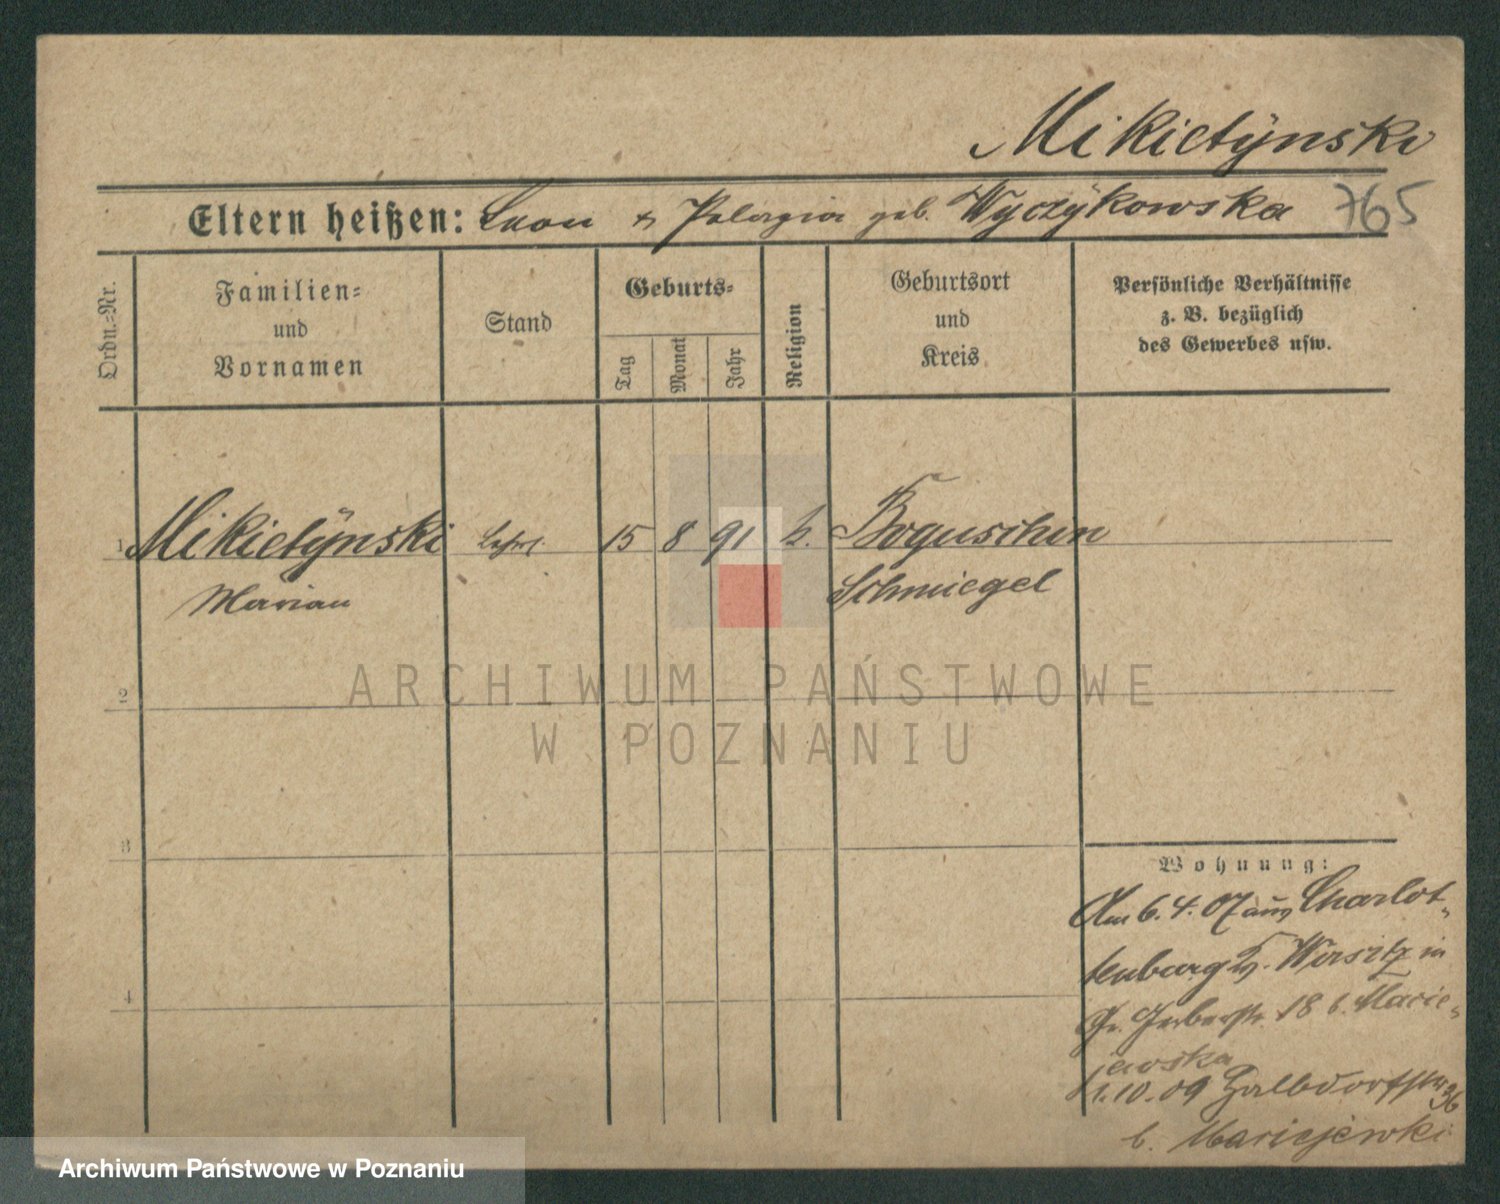 Mikietÿnski
Eltern heißen: Leon & Pelagia geb. Wyczÿkowska 765
Ordn.-Nr.
Familien-
und
Vornamen
Stand
Geburts-
Tag
Monat
Jahr
Religion
Geburtsort
und
Kreis
Persönliche Verhältnisse
z. B. bezüglich
des Gewerbes usw.
1 Mikietÿnski 15 8 91 k. Boguschin
Marian Schmiegel
ARCHIWUM PAŃSTWOWE
W POZNANIU
2
3
4
Wohnung:
Am 6.4.07 aus Charlot-
tenburg Wirsitz in
Gr. Gerberstr. 18 b. Macie-
jewska
1.10.09 36
b. Maciejewski
Archiwum Państwowe w Poznaniu